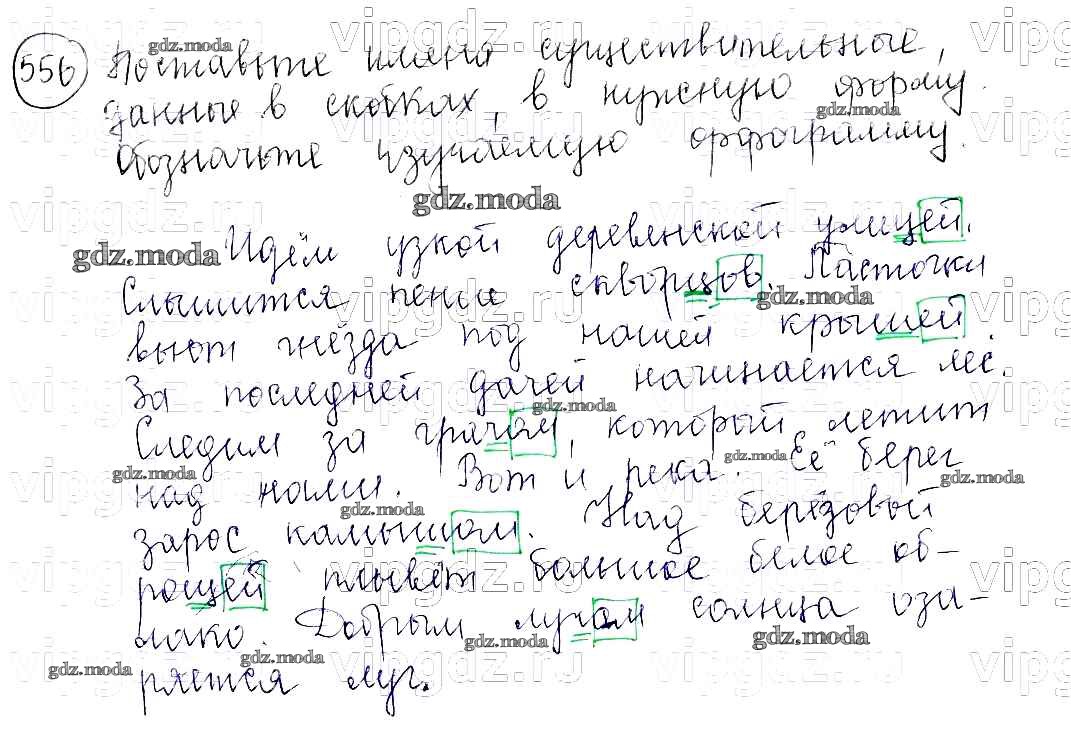 556 Поставьте имена существительные,
данные в скобках, в нужную форму.
Обозначьте изучаемую орфограмму.
Идём узкой деревенской улицей.
Слышится пенье скворцов. Ласточки
вьют гнёзда под нашей крышей.
За последней дачей начинается лес.
Следим за грачом, который летит
над нами. Вот и река. Её берег
зарос камышом. Над берёзовой
рощей плывёт большое белое об-
лако. Добрым лучом солнца оза-
ряется луг.